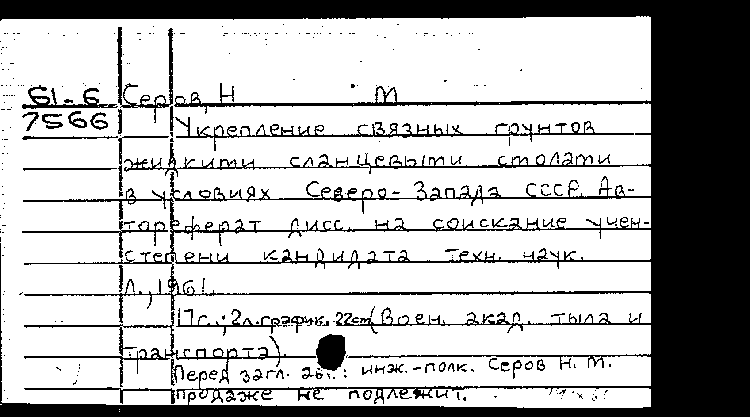 61-6 Серов, Н М
7566 Укрепление связных грунтов
жидкими сланцевыми смолами
в условиях Северо-Запада СССР. Ав-
тореферат дисс. на соискание учен-
степени кандидата техн. наук.
Л., 1961.
17с.; 2л.график. 22см (Воен. акад. тыла и
транспорта).
Перед загл. авт.: инж.-полк. Серов Н. М.
Продаже не подлежит.